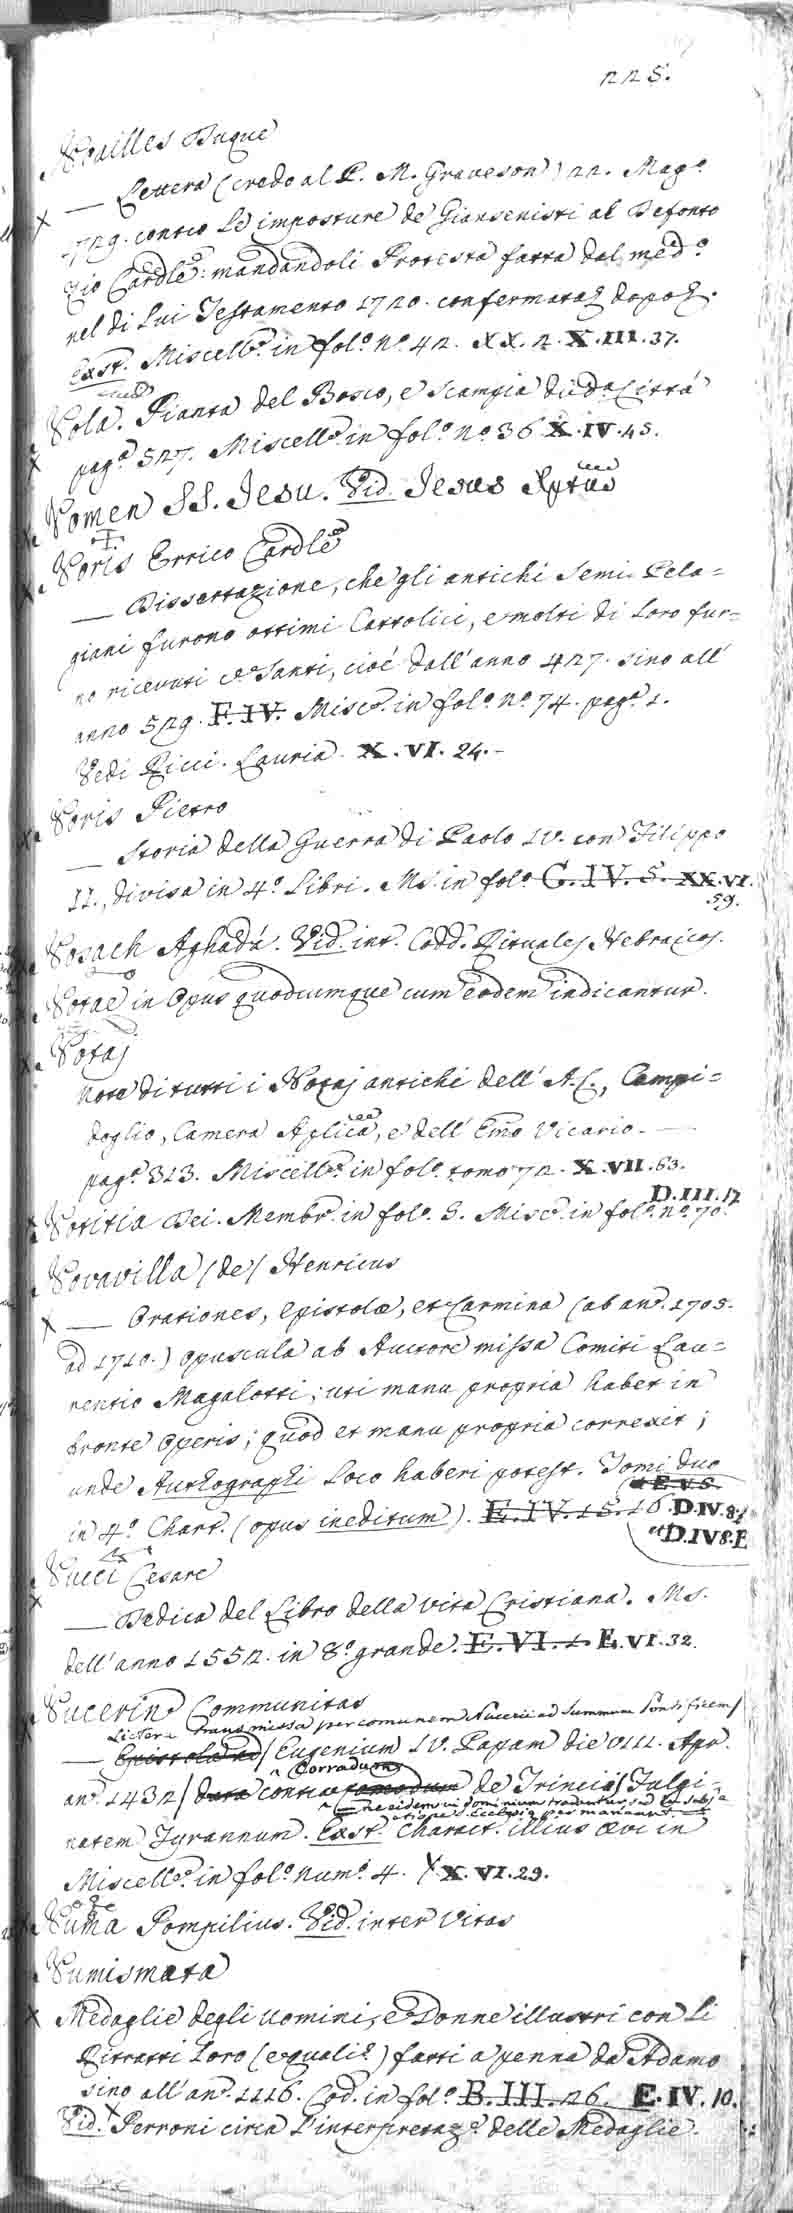 225.
Noailles Duque
— Lettera (credo al P. M. Graveson) 22. Magᵒ.
1729. contro le imposture de Giansenisti al Defonto
Zio Cardle: mandandoli Protesta fatta dal medᵒ.
nel di lui Testamento 1720. confermata dopo.
Exst. Miscellᵒ. in folᵒ. nᵒ. 42. XX. 2. X.III.37.
Nola. Pianta del Bosco, e Scampia di da Città
pagᵃ. 527. Miscellᵒ. in folᵒ. nᵒ. 36 X.IV.45.
Nomen SS. Jesu. Vid. Jesus Xptus
Noris Errico Cardle
— Dissertazione, che gli antichi Semi-Pela=
giani furono ottimi Cattolici, e molti di loro fur=
no ricevuti cᵒ Santi, cioé dall'anno 427. sino all'
anno 529. F.IV. Miscᵒ. in folᵒ. nᵒ. 74. pagᵃ. 1.
Vedi Ricci. Lauria. X.VI. 24.-
Noris Pietro
— Storia della Guerra di Paolo IV. con Filippo
II., divisa in 4ᵒ. Libri. Ms. in folᵒ. C.IV. 5. XX.VI.
59.
Nosach Aghadá. Vid. int. Codd. Rituales Hebraicos.
Notae in Opus quodcumque cum eodem indicantur.
Notaj
note di tutti i Notaj antichi dell' A.C., Campi=
doglio, Camera Aplica, e dell' Emo Vicario. —
pagᵃ. 313. Miscellᵒ. in folᵒ. tomo 72. X.VII.63.
D.III.17
Notitia Dei. Membrᵒ. in folᵒ. S. Miscᵒ. in folᵒ. nᵒ. 70.
Novavilla (de) Henricus
— Orationes, epistolæ, et Carmina (ab anᵒ. 1705.
ad 1710.) opuscula ab Auctore missa Comiti Lau=
rentio Magalotti; uti manu propria habet in
fronte Operis; quod et manu propria correxit;
unde Authographi loco haberi potest. Tomi duo
E.V.S.
in 4ᵒ. Chart. (opus ineditum). E.IV. 15. 16. D.IV.8.
et D.IV8.E
Nucci Cesare
— Dedica del Libro della vita Cristiana. Ms.
dell'anno 1552. in 8ᵒ grande. E.VI. 1. E.VI.32.
Nucerinᵃ Communitas
Litteræ transmissa per comunem Nucerie ad Summum Pontificem/
— Epistola ad / Eugenium IV. Papam die VIII. Apr.
Corradum
anᵒ. 1432 / data contra de Trinciis / Fulgi=
ne eidem in dominium tradentur, sed
natem Tyrannum. Exst. Charact. illius ævi in
Miscellᵒ. in folᵒ. numᵒ. 4. X.VI.29.
Numa Pompilius. Vid. inter Vitas
Numismata
Medaglie degli uomini, e Donne illustri con li
Ritratti loro (e quali) fatti a penna da Adamo
sino all'anᵒ. 1116. Cod. in folᵒ. B.III. 26. E.IV.10.
Vid. Perroni circa l'interpretazᵉ. delle Medaglie.